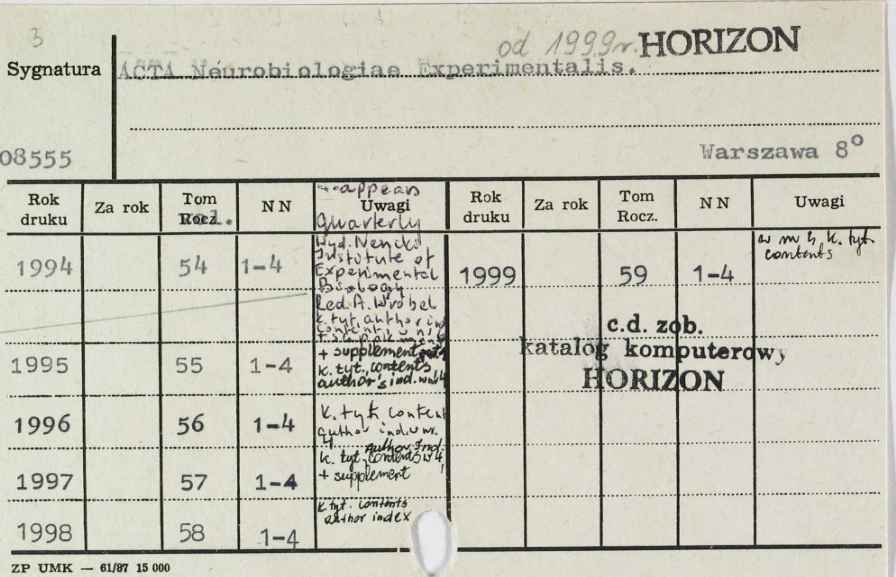 3
od 1999r. HORIZON
Sygnatura ACTA Neurobiologiae Experimentalis.
08555
Warszawa 8°
Rok druku Za rok Tom Rocz. NN Uwagi Rok druku Za rok Tom Rocz. NN Uwagi
appears
quarterly
1994 54 1-4
Wyd. Nencki
Institute of
Experimental
Biology
Red. A. Wróbel
k. tyt. author ind
1999 59 1-4
w nr 4 k. tyt.
contents
c.d. zob.
katalog komputerowy
HORIZON
1995 55 1-4
+ supplement
k. tyt., contents
author's ind. w nr 4
1996 56 1-4
k. tyt. content
author ind. w nr.
4
1997 57 1-4
Author Ind.
k. tyt. contents w 4
+ supplement
1998 58 1-4
k. tyt. contents
author index
ZP UMK — 61/87 15 000